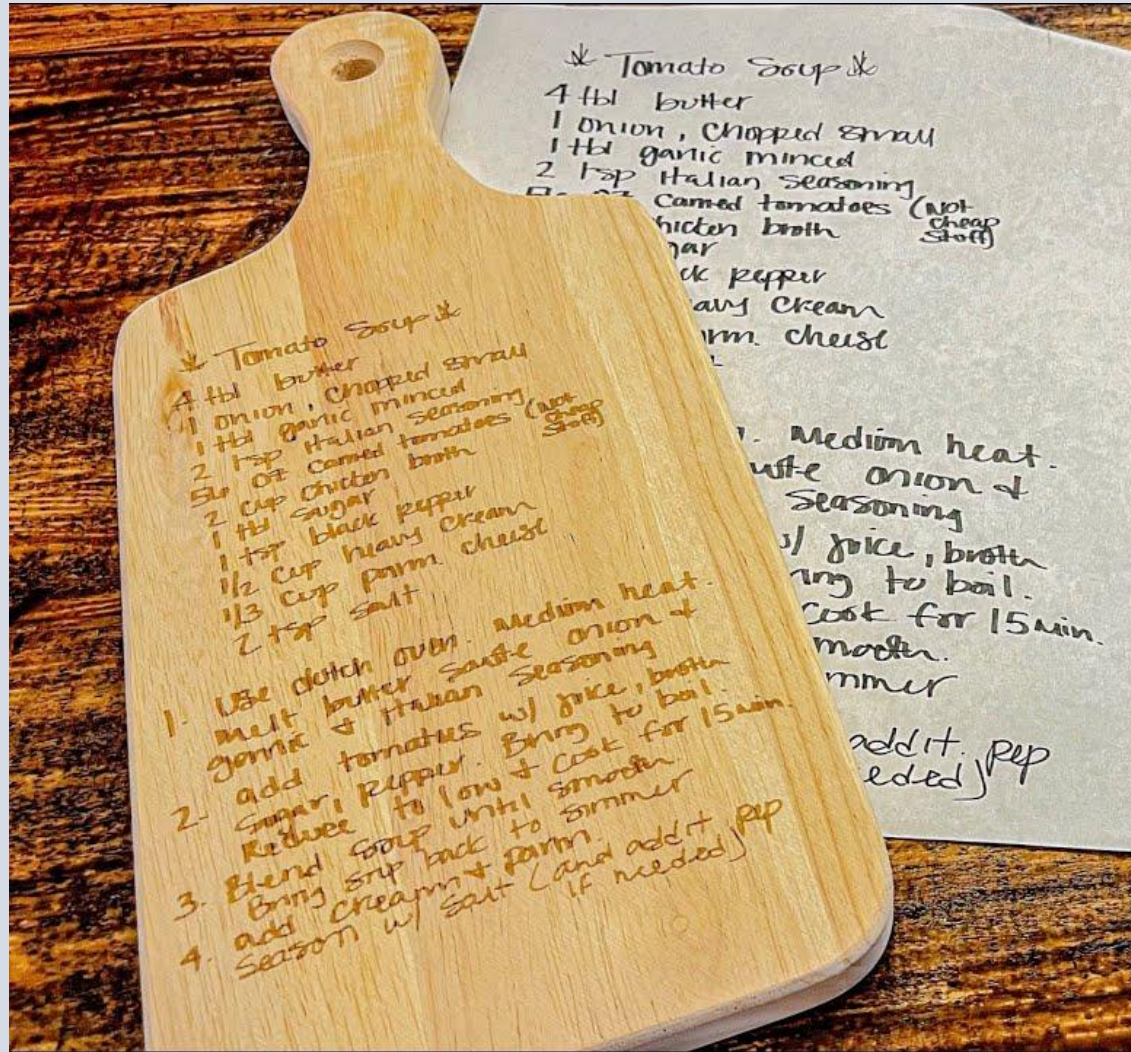 Tomato Soup
4 tbl butter
1 onion, chopped small
1 tbl garlic minced
2 tsp Italian seasoning
56 oz canned tomatoes (Not cheap stuff)
2 cup chicken broth
1 tbl sugar
1 tsp black pepper
1/2 cup heavy cream
1/3 cup parm cheese
2 tsp salt
1. Use dutch oven. Medium heat.
melt butter saute onion &
garlic & Italian seasoning
2. add tomatoes w/ juice, broth
sugar, pepper. Bring to boil.
Reduce to low & cook for 15 min.
3. Blend soup until smooth.
Bring soup back to simmer
4. add cream & parm.
Season w/ salt (and addit. pep
if needed)
Tomato Soup
4 tbl butter
1 onion, chopped small
1 tbl garlic minced
2 tsp Italian seasoning
canned tomatoes (Not cheap stuff)
hicken broth
gar
ck pepper
avy cream
rm. cheese
. Medium heat.
ute onion &
seasoning
w/ juice, broth
ring to boil.
cook for 15 min.
mooth.
mmer
addit. pep
eeded)